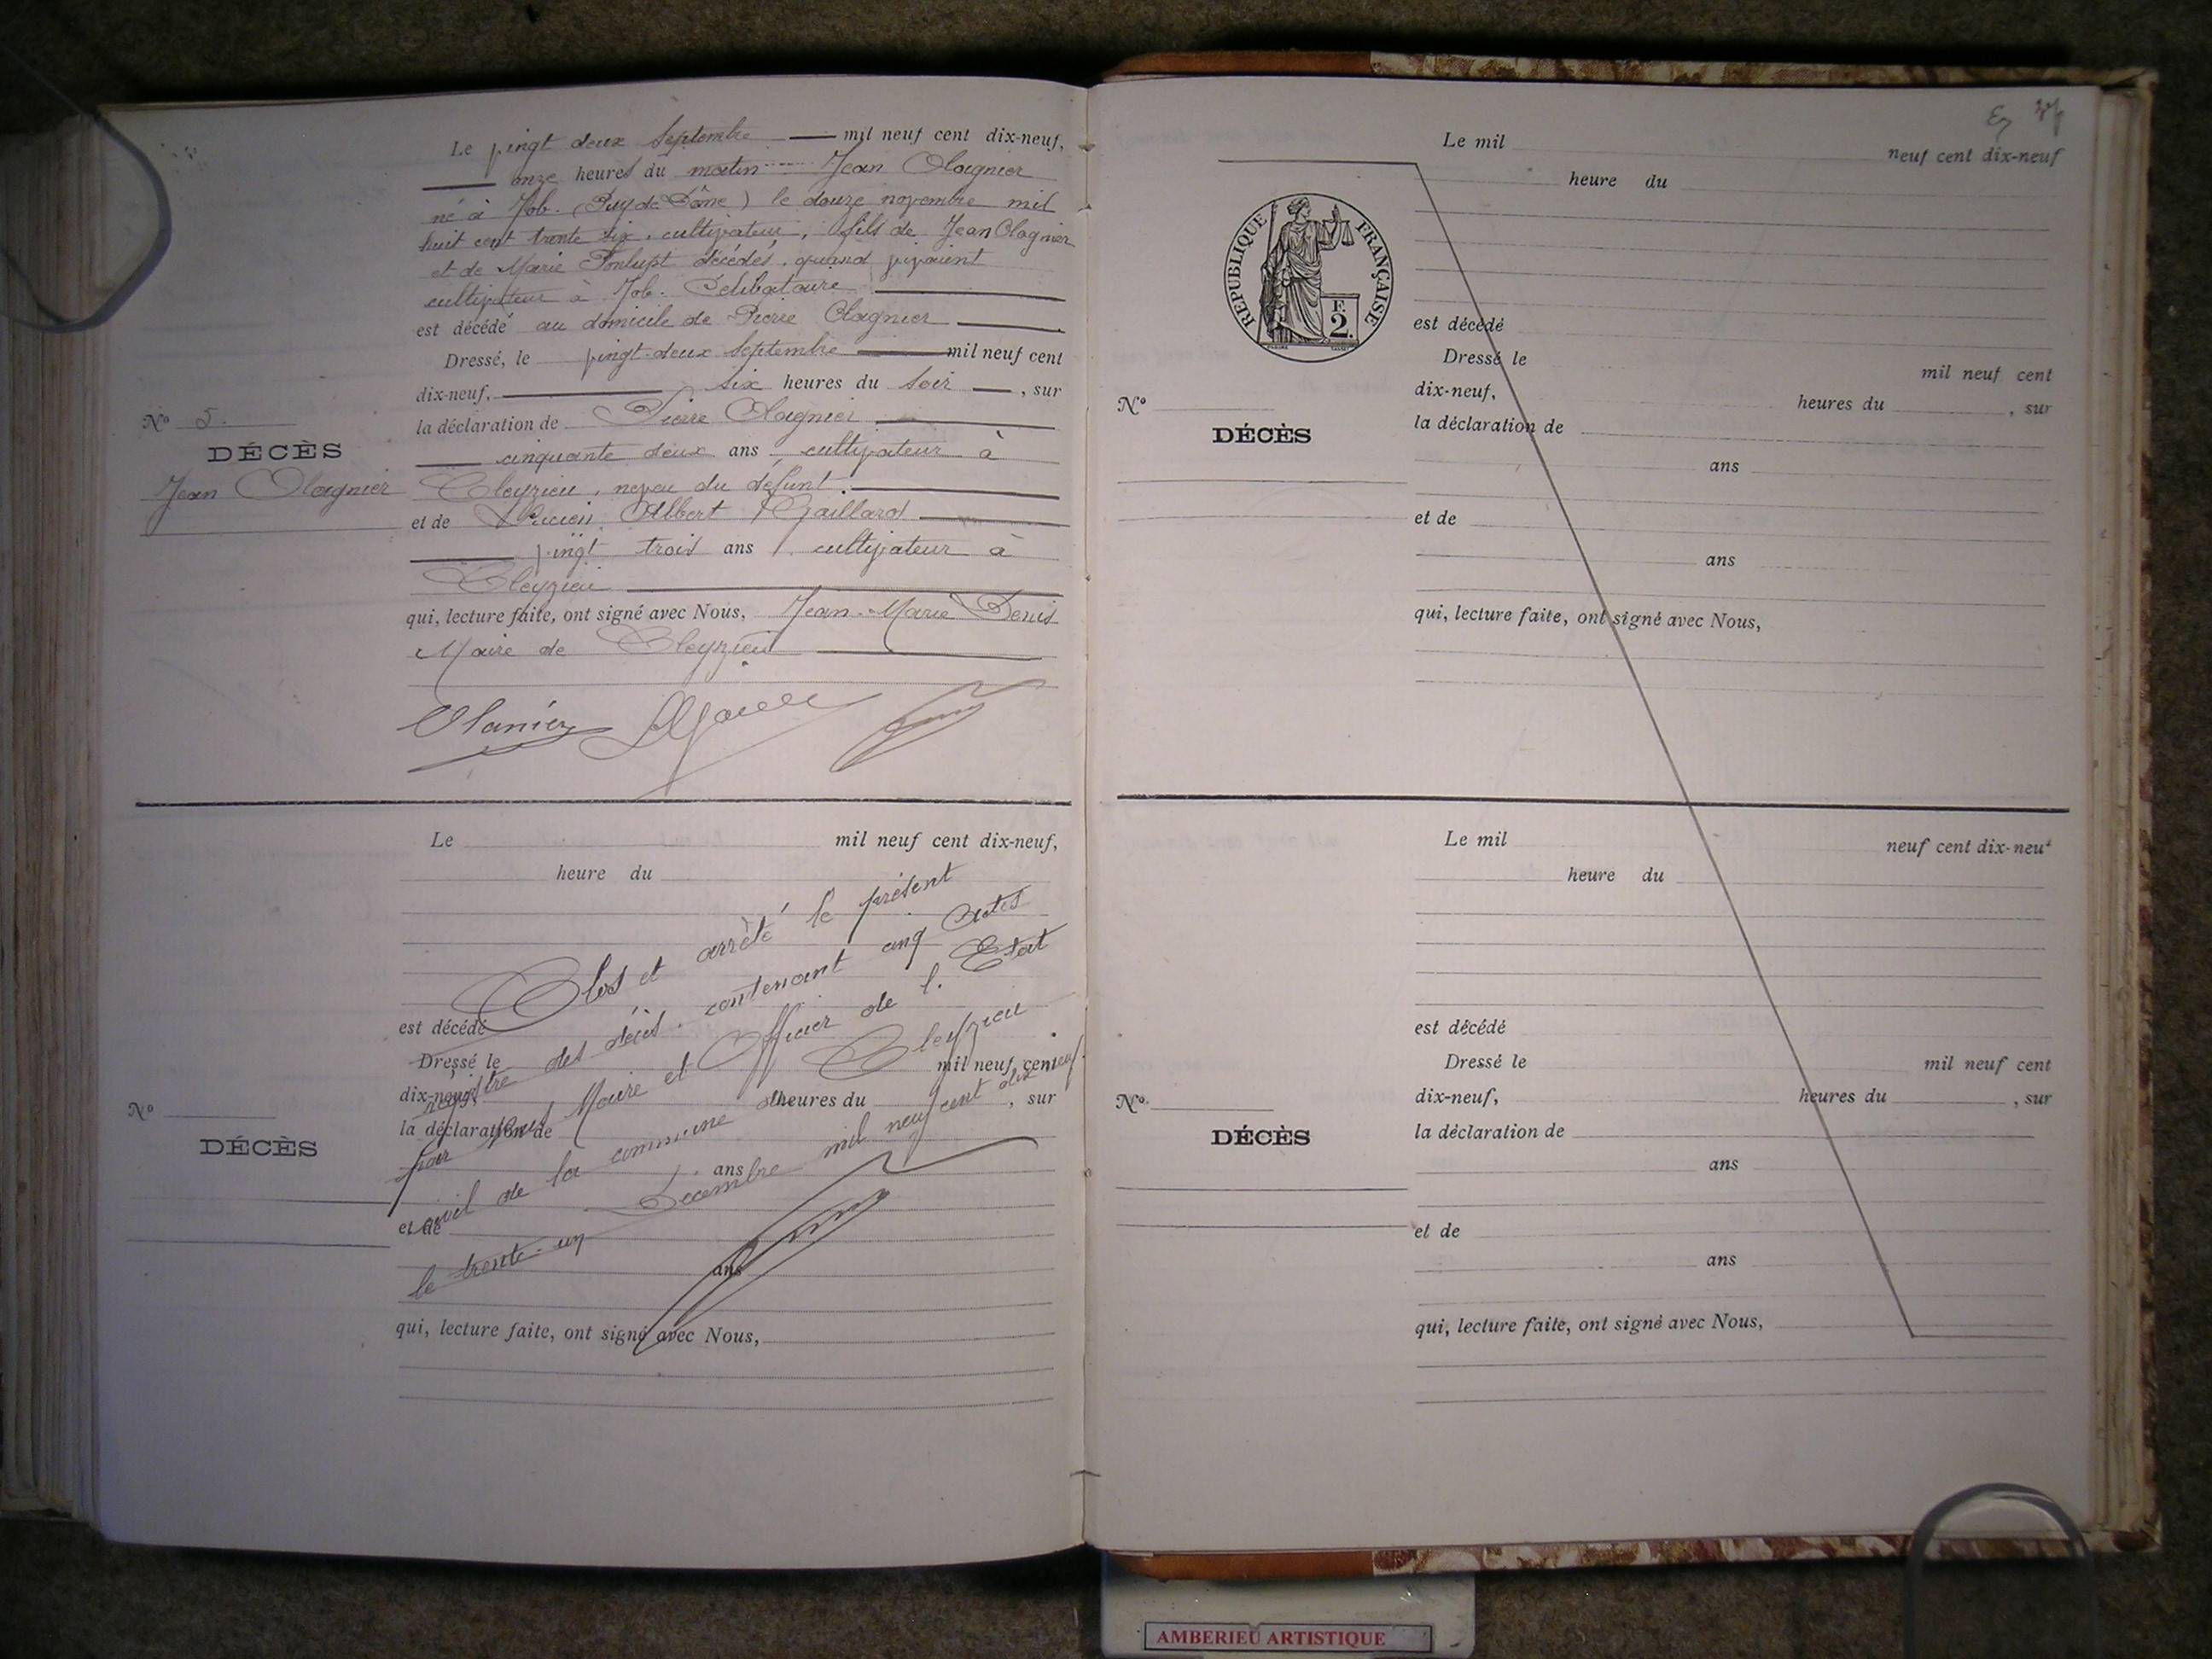 Le vingt deux Septembre mil neuf cent dix-neuf,
onze heures du matin Jean Olagnier
né à Job (Puy de Dôme) le douze novembre mil
huit cent trente six, cultivateur, fils de Jean Olagnier
et de Marie décédés, quand vivaient
cultivateur à Job. Célibataire
est décédé au domicile de Pierre Olagnier
Dressé, le vingt-deux Septembre mil neuf cent
dix-neuf, six heures du soir, sur
la déclaration de Pierre Olagnier
cinquante deux ans cultivateur à
Cleyzieu, neveu du défunt.
et de Lucien Albert Gaillard
vingt trois ans, cultivateur à
Cleyzieu
qui, lecture faite, ont signé avec Nous, Jean-Marie Denis
Maire de Cleyzieu
Nº 5.
DÉCÈS
Jean Olagnier
Olanier
Le mil neuf cent dix-neuf,
heure du
est décédé
Dressé le mil neuf cent
dix-neuf, heures du , sur
la déclaration de
ans
et de
ans
qui, lecture faite, ont signé avec Nous,
Nº
DÉCÈS
Clos et arrêté le présent
registre des décès, contenant cinq Actes
par nous Maire et Officier de l'Etat
civil de la commune de Cleyzieu
le trente-un Décembre mil neuf cent dix neuf.
37
Le mil neuf cent dix-neuf
heure du
RÉPUBLIQUE FRANÇAISE
F.
2.
est décédé
Dressé le mil neuf cent
dix-neuf, heures du , sur
la déclaration de
ans
et de
ans
qui, lecture faite, ont signé avec Nous,
Nº
DÉCÈS
Le mil neuf cent dix-neuf
heure du
est décédé
Dressé le mil neuf cent
dix-neuf, heures du , sur
la déclaration de
ans
et de
ans
qui, lecture faite, ont signé avec Nous,
Nº
DÉCÈS
AMBERIEU ARTISTIQUE